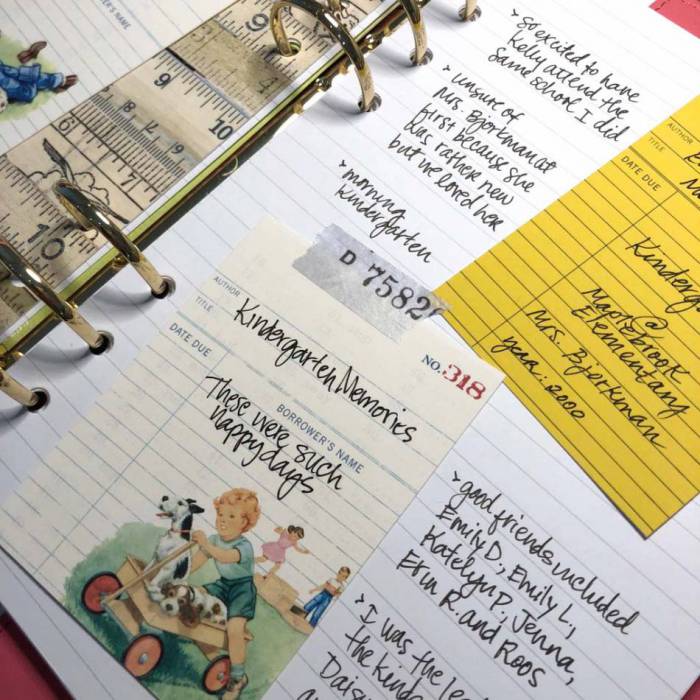 BORROWER'S NAME
9
9
10
8
7
9
6
7
10
> so excited to have
Kelly attend the
same school I did
> unsure of
Mrs. Bjorkman at
first because she
was rather new
but we loved her
> morning
Kindergarten
D 7582
AUTHOR
TITLE
Kindergarten Memories
No. 318
DATE DUE
BORROWER'S NAME
These were such
happy days
AUTHOR
TITLE
DATE DUE
@
Maplebrook
Elementary
Mrs. Bjorkman
year: 2000
> good friends included
Emily D., Emily L.,
Katelyn P., Jenna,
Erin R. and Roos
> I was the
the